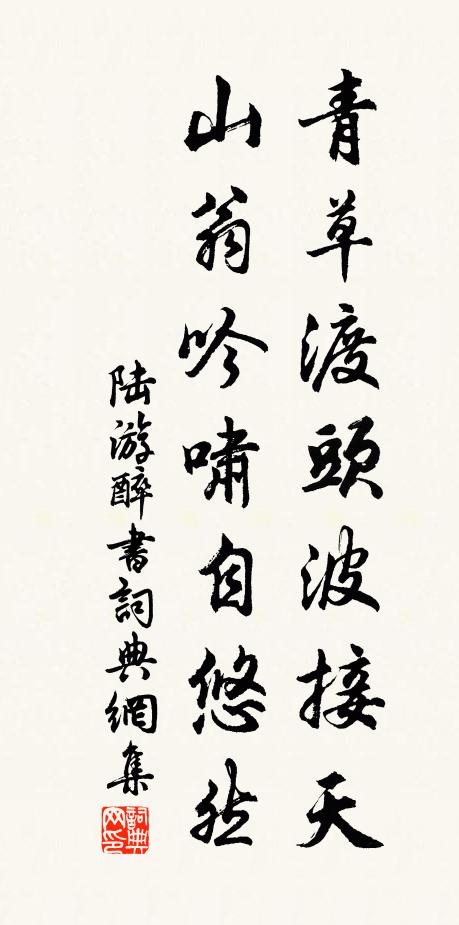 青草渡頭波接天
山翁吟嘯自悠然
陆游醉書詞典網集
詞典网印